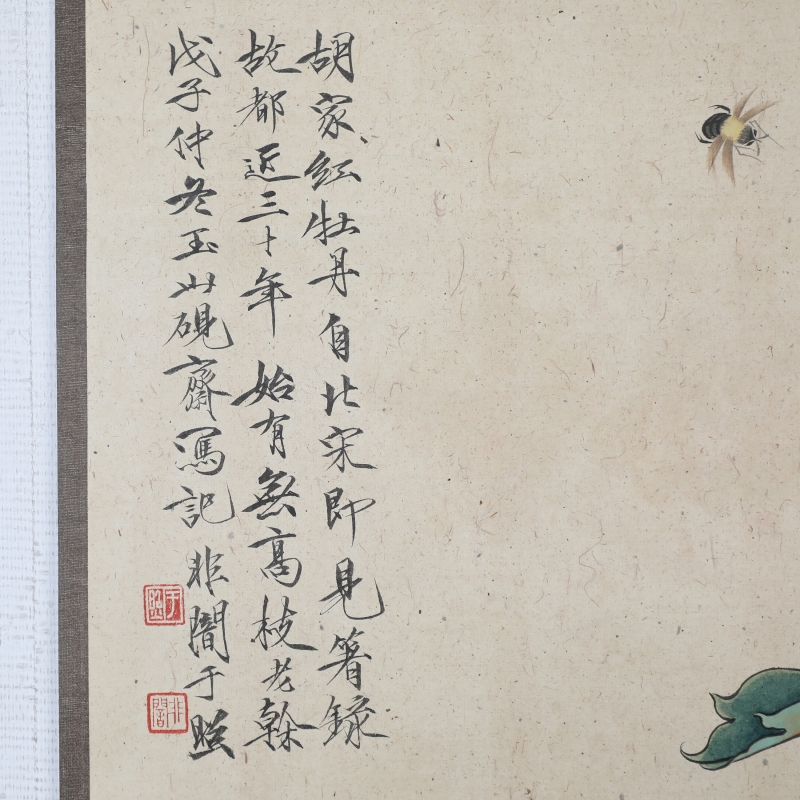 胡家红牡丹自北宋即見箸録
故都近三十年始有無高枝老榦
戊子仲冬玉山硯齋寫記
非闇于照
于照
非闇